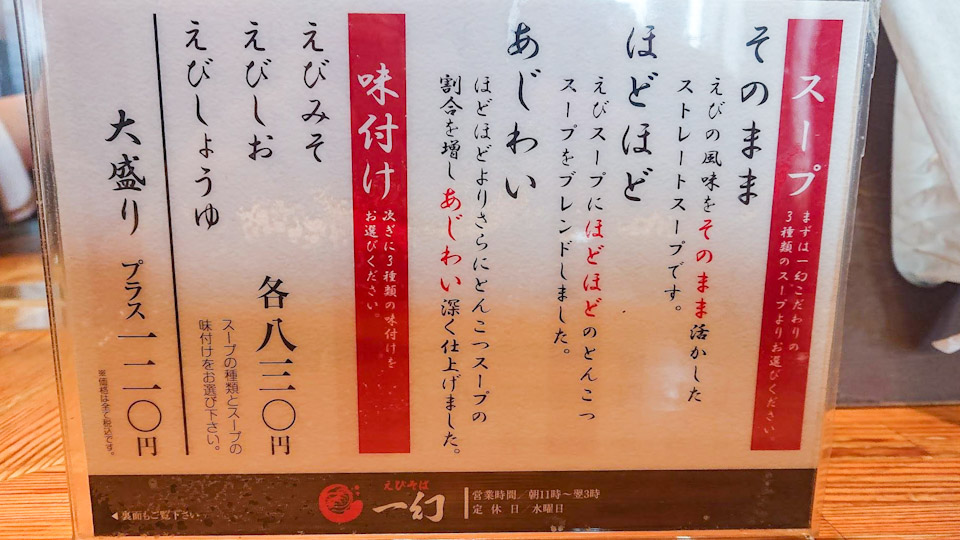 スープ
まずは一幻こだわりの
3種類のスープよりお選びください
そのまま
えびの風味をそのまま活かした
ストレートスープです。
ほどほど
えびスープにほどほどのとんこつ
スープをブレンドしました。
あじわい
ほどほどよりさらにとんこつスープの
割合を増しあじわい深く仕上げました。
味付け
次ぎに3種類の味付けを
お選びください。
えびみそ
えびしお
えびしょうゆ
各八三〇円
スープの種類とスープの
味付けをお選び下さい。
大盛り プラス一二〇円
※価格は全て税込です。
◀裏面もご覧下さい
えびそば
一幻
営業時間/朝11時〜翌3時
定休日/水曜日